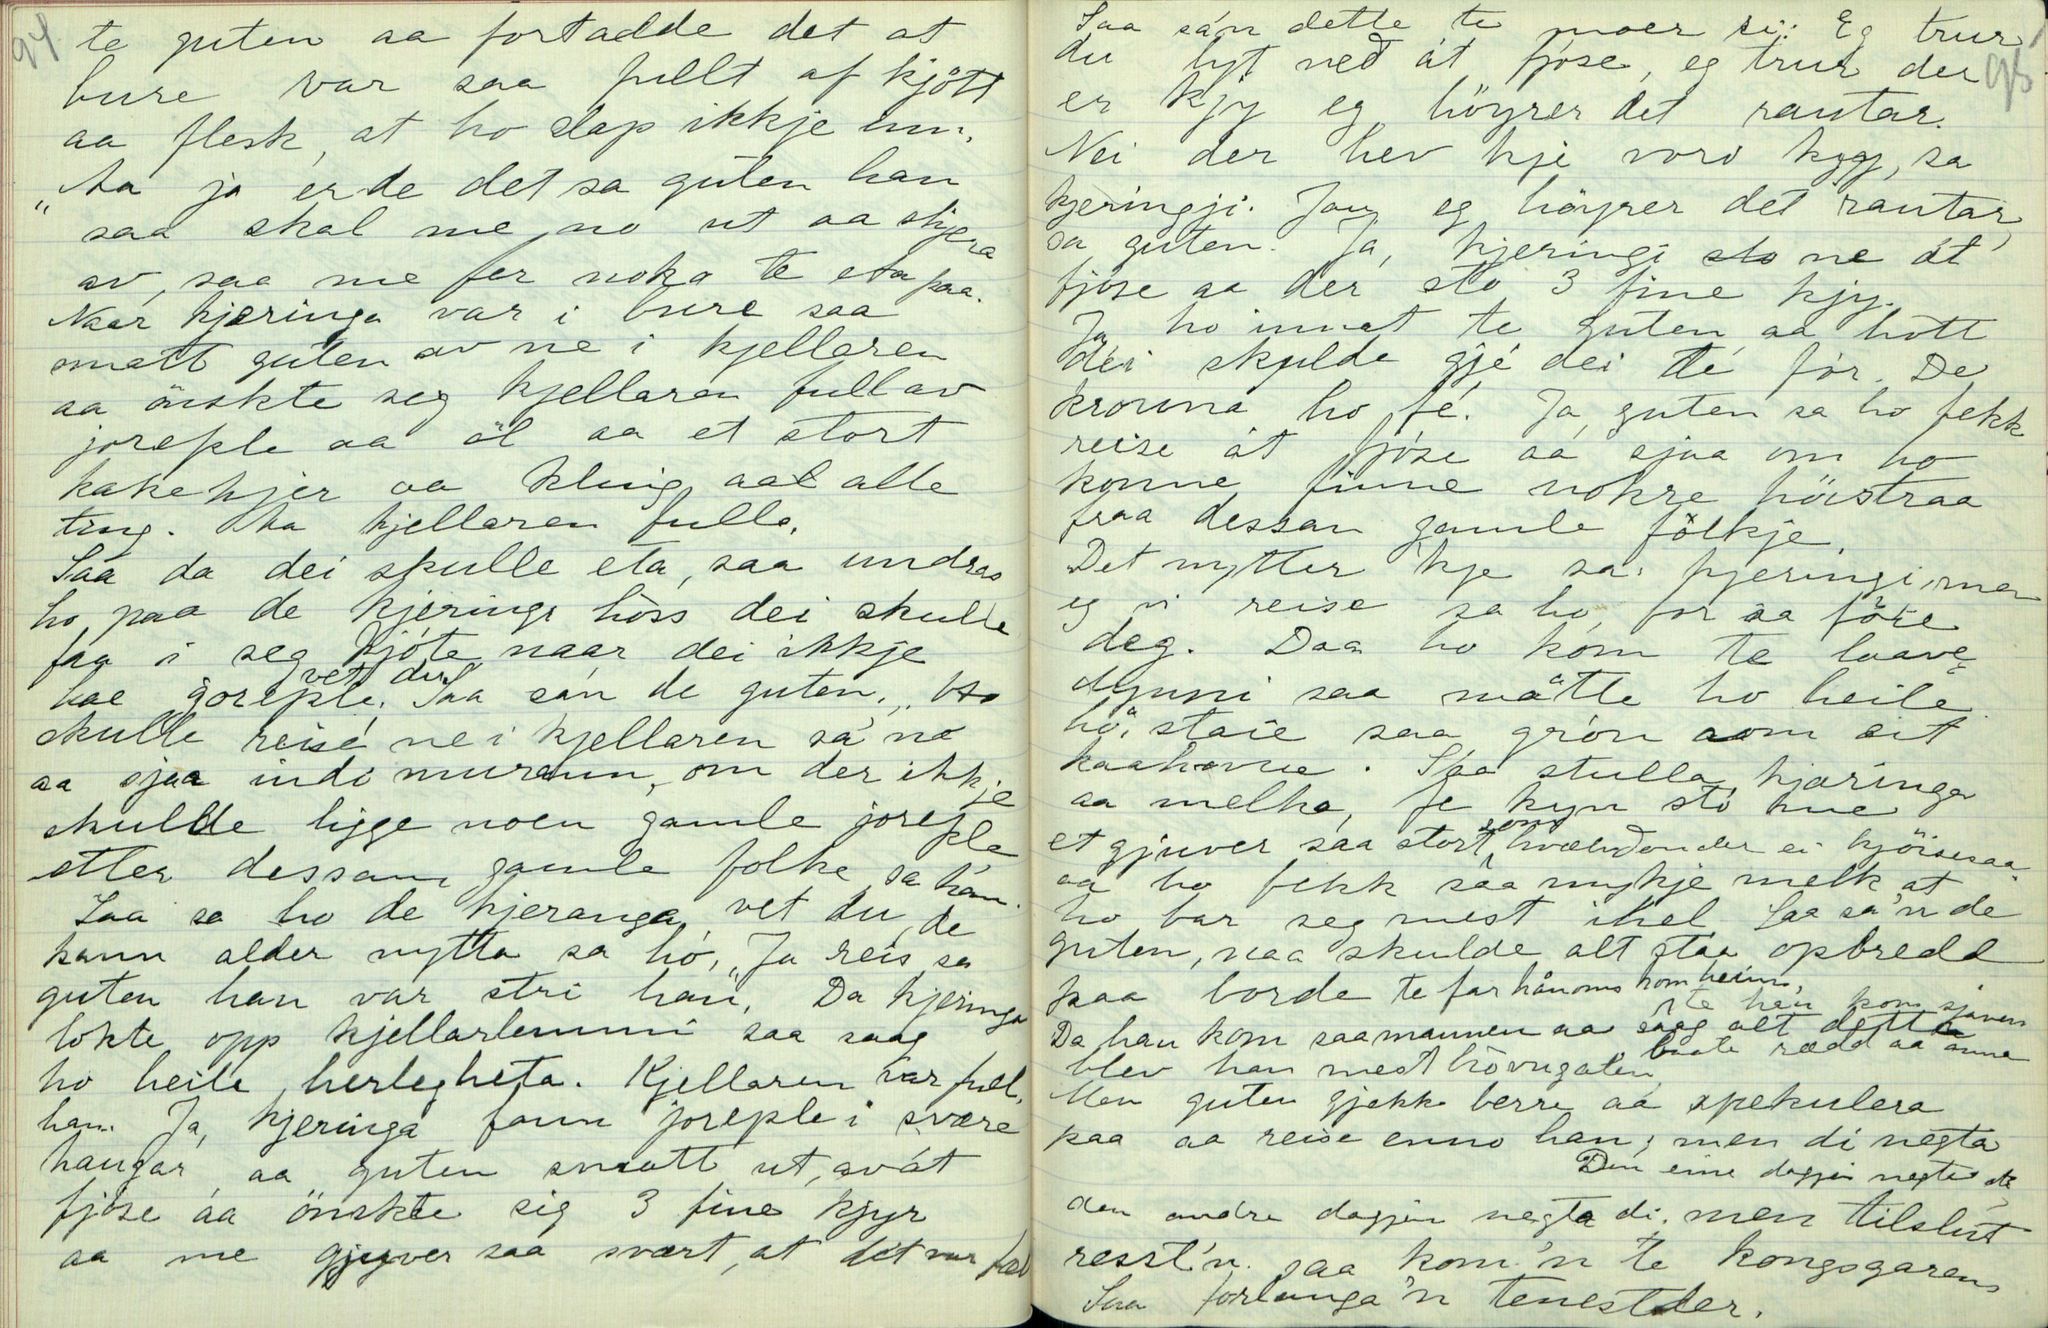 94
te guten aa fortadde det at
bure var saa fullt af kjött
aa flesk, at ho slap ikkje inn.
"Aa ja er de det sa guten han
saa skal me no ut aa skjera
av, saa me fer noko te eta paa.
Naar kjæringa var i bure saa
smatt guten av ne i kjellaren
aa önskte seg kjellaren full av
joreple aa öl aa et stort
kakekjer aa kling aal alle
ting. Aa kjellaren fulla.
Saa da dei skulle eta, saa undras
ho paa de kjeringi höss dei skulle
faa i seg kjöte naar dei ikkje
hae joreple, vet du. Saa sán de guten, ho
skulle reisé ne i kjellaren sá no
aa sjaa indi murenn, om der ikkje
skulde ligge noen gamle joreple
etter dessam gamle folke sa han.
Saa sa ho de kjeranga, vet du, de
kann alder nytta sa ho, "Ja reis sa
guten han var stri han. Da kjeringa
lokte opp kjellarlemmi saa saag
ho heile herlegheta. Kjellaren var full,
han. Ja, kjeringa fann joreple i svære
haugar aa guten smatt ut, av át
fjöse áa önskte sig 3 fine kjyr
aa me gjuver saa svært, at det var fæl
95
Saa sán dette te moer si: Eg trur
du lyt ned át fjöse, eg trur der
er kjy eg höyrer det rautar.
Nei der hev kje vori kjy, sa
kjeringji. Jau eg höyrer det rautar,
sa guten. Ja, kjeringi sto ne át
fjöse aa der sto 3 fine kjy.
Ja ho innat te guten aa hott
dei skulde gjé dei té fór. De
krouna ho fé. Ja, guten sa ho fekk
reise át fjöse aá sjaa om ho
konne finne nokre höistraa
fraa dessan gamle fölkje.
Det nytter kje sa kjeringi, men
eg vi reise sa ho, for aa föie
deg. Daa ho kóm te laave
dynni saa mátte ho heile
höistaie saa grön som eit
kaahovue. Saa stulla kjæringa
aa melka, fe kyn sto me
et gjuver saa stort som hvælvdonder ei kjöisesaa
aa ho fekk saa mykje melk at
ho bar seg mest ihel. Saa sa'n de
guten, naa skulde alt staa opbredd
paa borde te far hánoms kom heim,
te han kom sjaven
Da han kom saa mannen aa saag alt dette
blev han mest hövugalen, baate rædd aa anna
Men guten gjekk berre aá spekulera
paa aa reise enno han, men di negta
Den eine dagjen negta de
den andre dagjen negta di. men tilslut
resst'n. saa kom'n te kongsgarens
Saa forlanga'n tenest der.